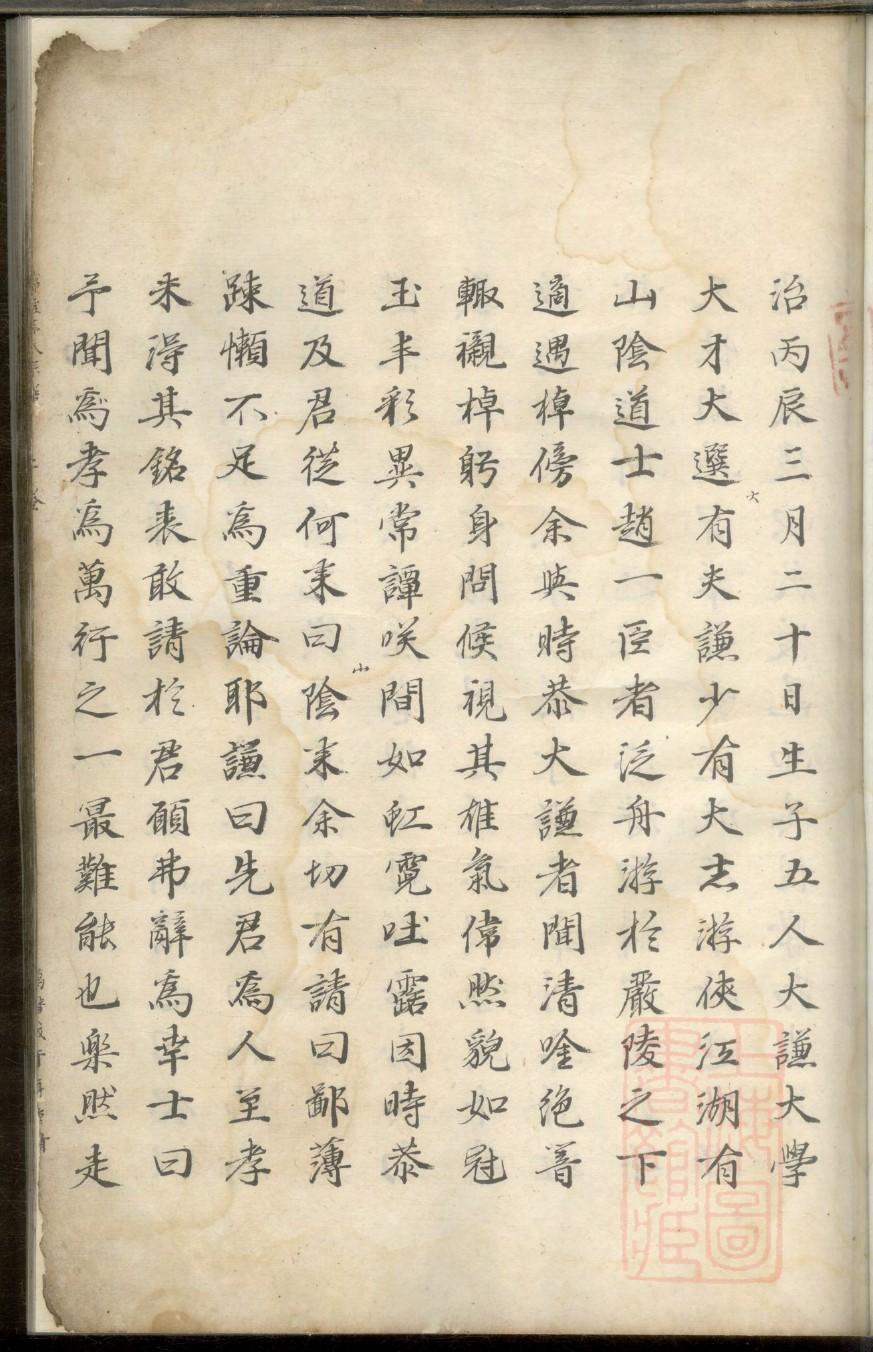 治丙辰三月二十日生子五人大謙大學
大才大選有夫謙少有大志游俠江湖有
大
山陰道士趙一臣者泛舟游於嚴陵之下
適遇棹傍余與時恭大謙者聞清唫絶音
輙襯棹躬身問候視其雄氣偉然貌如冠
玉丰彩異常譚咲間如虹霓吐露因時恭
山
道及君從何来曰陰来余切有請曰鄙薄
踈懶不足為重論耶謙曰先君為人至孝
来得其銘表敢請於君願弗辭為幸士曰
予聞為孝為萬行之一最難能也樂然走
上海圖書館藏